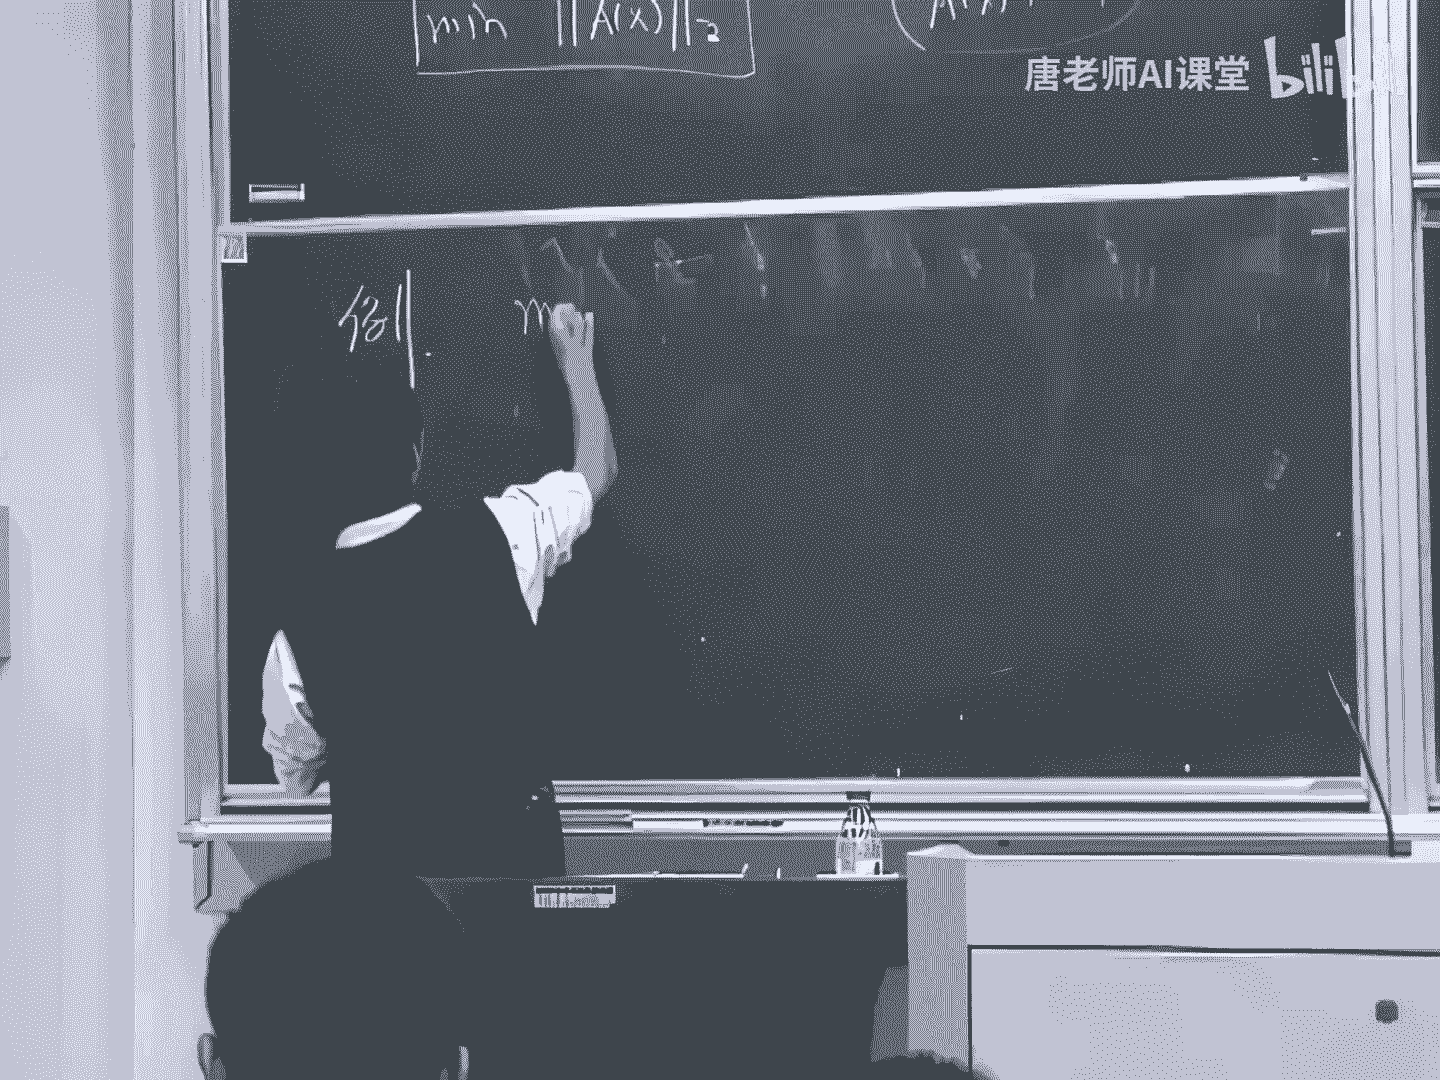 min ||A(x)||₂
唐老师AI课堂 bilibili
例
m